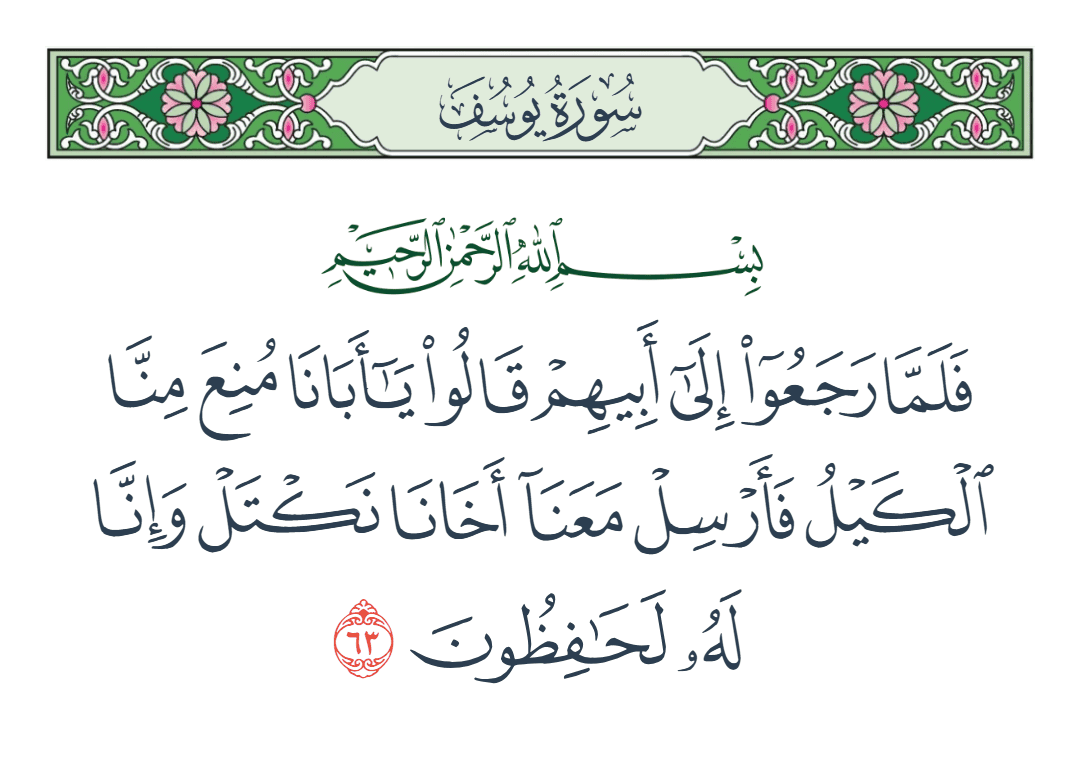 سُورَةُ يُوسُفَ
بِسْمِ ٱللَّهِ ٱلرَّحْمَٰنِ ٱلرَّحِيمِ
فَلَمَّا رَجَعُوٓا۟ إِلَىٰٓ أَبِيهِمْ قَالُوا۟ يَـٰٓأَبَانَا مُنِعَ مِنَّا
ٱلْكَيْلُ فَأَرْسِلْ مَعَنَآ أَخَانَا نَكْتَلْ وَإِنَّا
لَهُۥ لَحَـٰفِظُونَ ٦٣